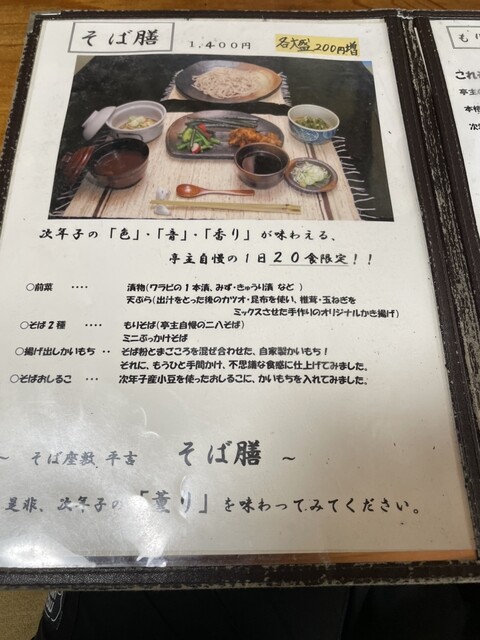 そば膳
1,400円
200円増
次年子の「色」・「音」・「香り」が味わえる、
亭主自慢の１日２０食限定！！
○前菜 ････ 漬物(ワラビの１本漬、みず・きゅうり漬 など )
天ぷら(出汁をとった後のカツオ・昆布を使い、椎茸・玉ねぎを
ミックスさせた手作りのオリジナルかき揚げ)
○そば２種 ････ もりそば(亭主自慢の二八そば)
ミニぶっかけそば
○揚げ出しかいもち ･･ そば粉とまごころを混ぜ合わせた、自家製かいもち！
それに、もうひと手間かけ、不思議な食感に仕上げてみました。
○そばおしるこ ････ 次年子産小豆を使ったおしるこに、かいもちを入れてみました。
～ そば座敷 平吉 そば膳 ～
是非、次年子の「薫り」を味わってみてください。
これぞ
亭主の
本格
次